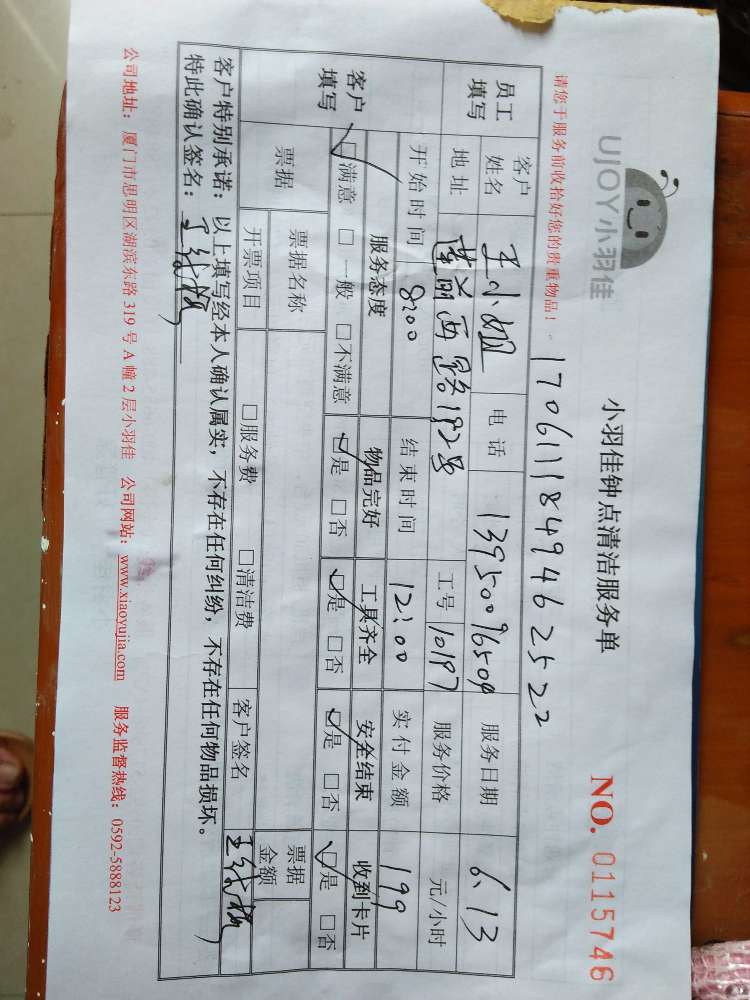 UJOY小羽佳
小羽佳钟点清洁服务单
NO. 0115746
请您于服务前收拾好您的贵重物品！
17061118494625​22
员工填写
客户姓名 王小姐 电话 13950096509 服务日期 6.13
地址 莲前西路192号 工号 10197 服务价格 元/小时
开始时间 8:00 结束时间 12:00 实付金额 199
客户填写
服务态度 物品完好 工具齐全 安全结束 收到卡片
☑满意 □一般 □不满意 ☑是 □否 ☑是 □否 ☑是 □否 ☑是 □否
票据 票据名称 票据金额
开票项目 □服务费 □清洁费 客户签名
客户特别承诺：以上填写经本人确认属实，不存在任何纠纷，不存在任何物品损坏。
特此确认签名：
公司地址：厦门市思明区湖滨东路 319 号 A 幢 2 层小羽佳 公司网站：www.xiaoyujia.com 服务监督热线：0592-5888123